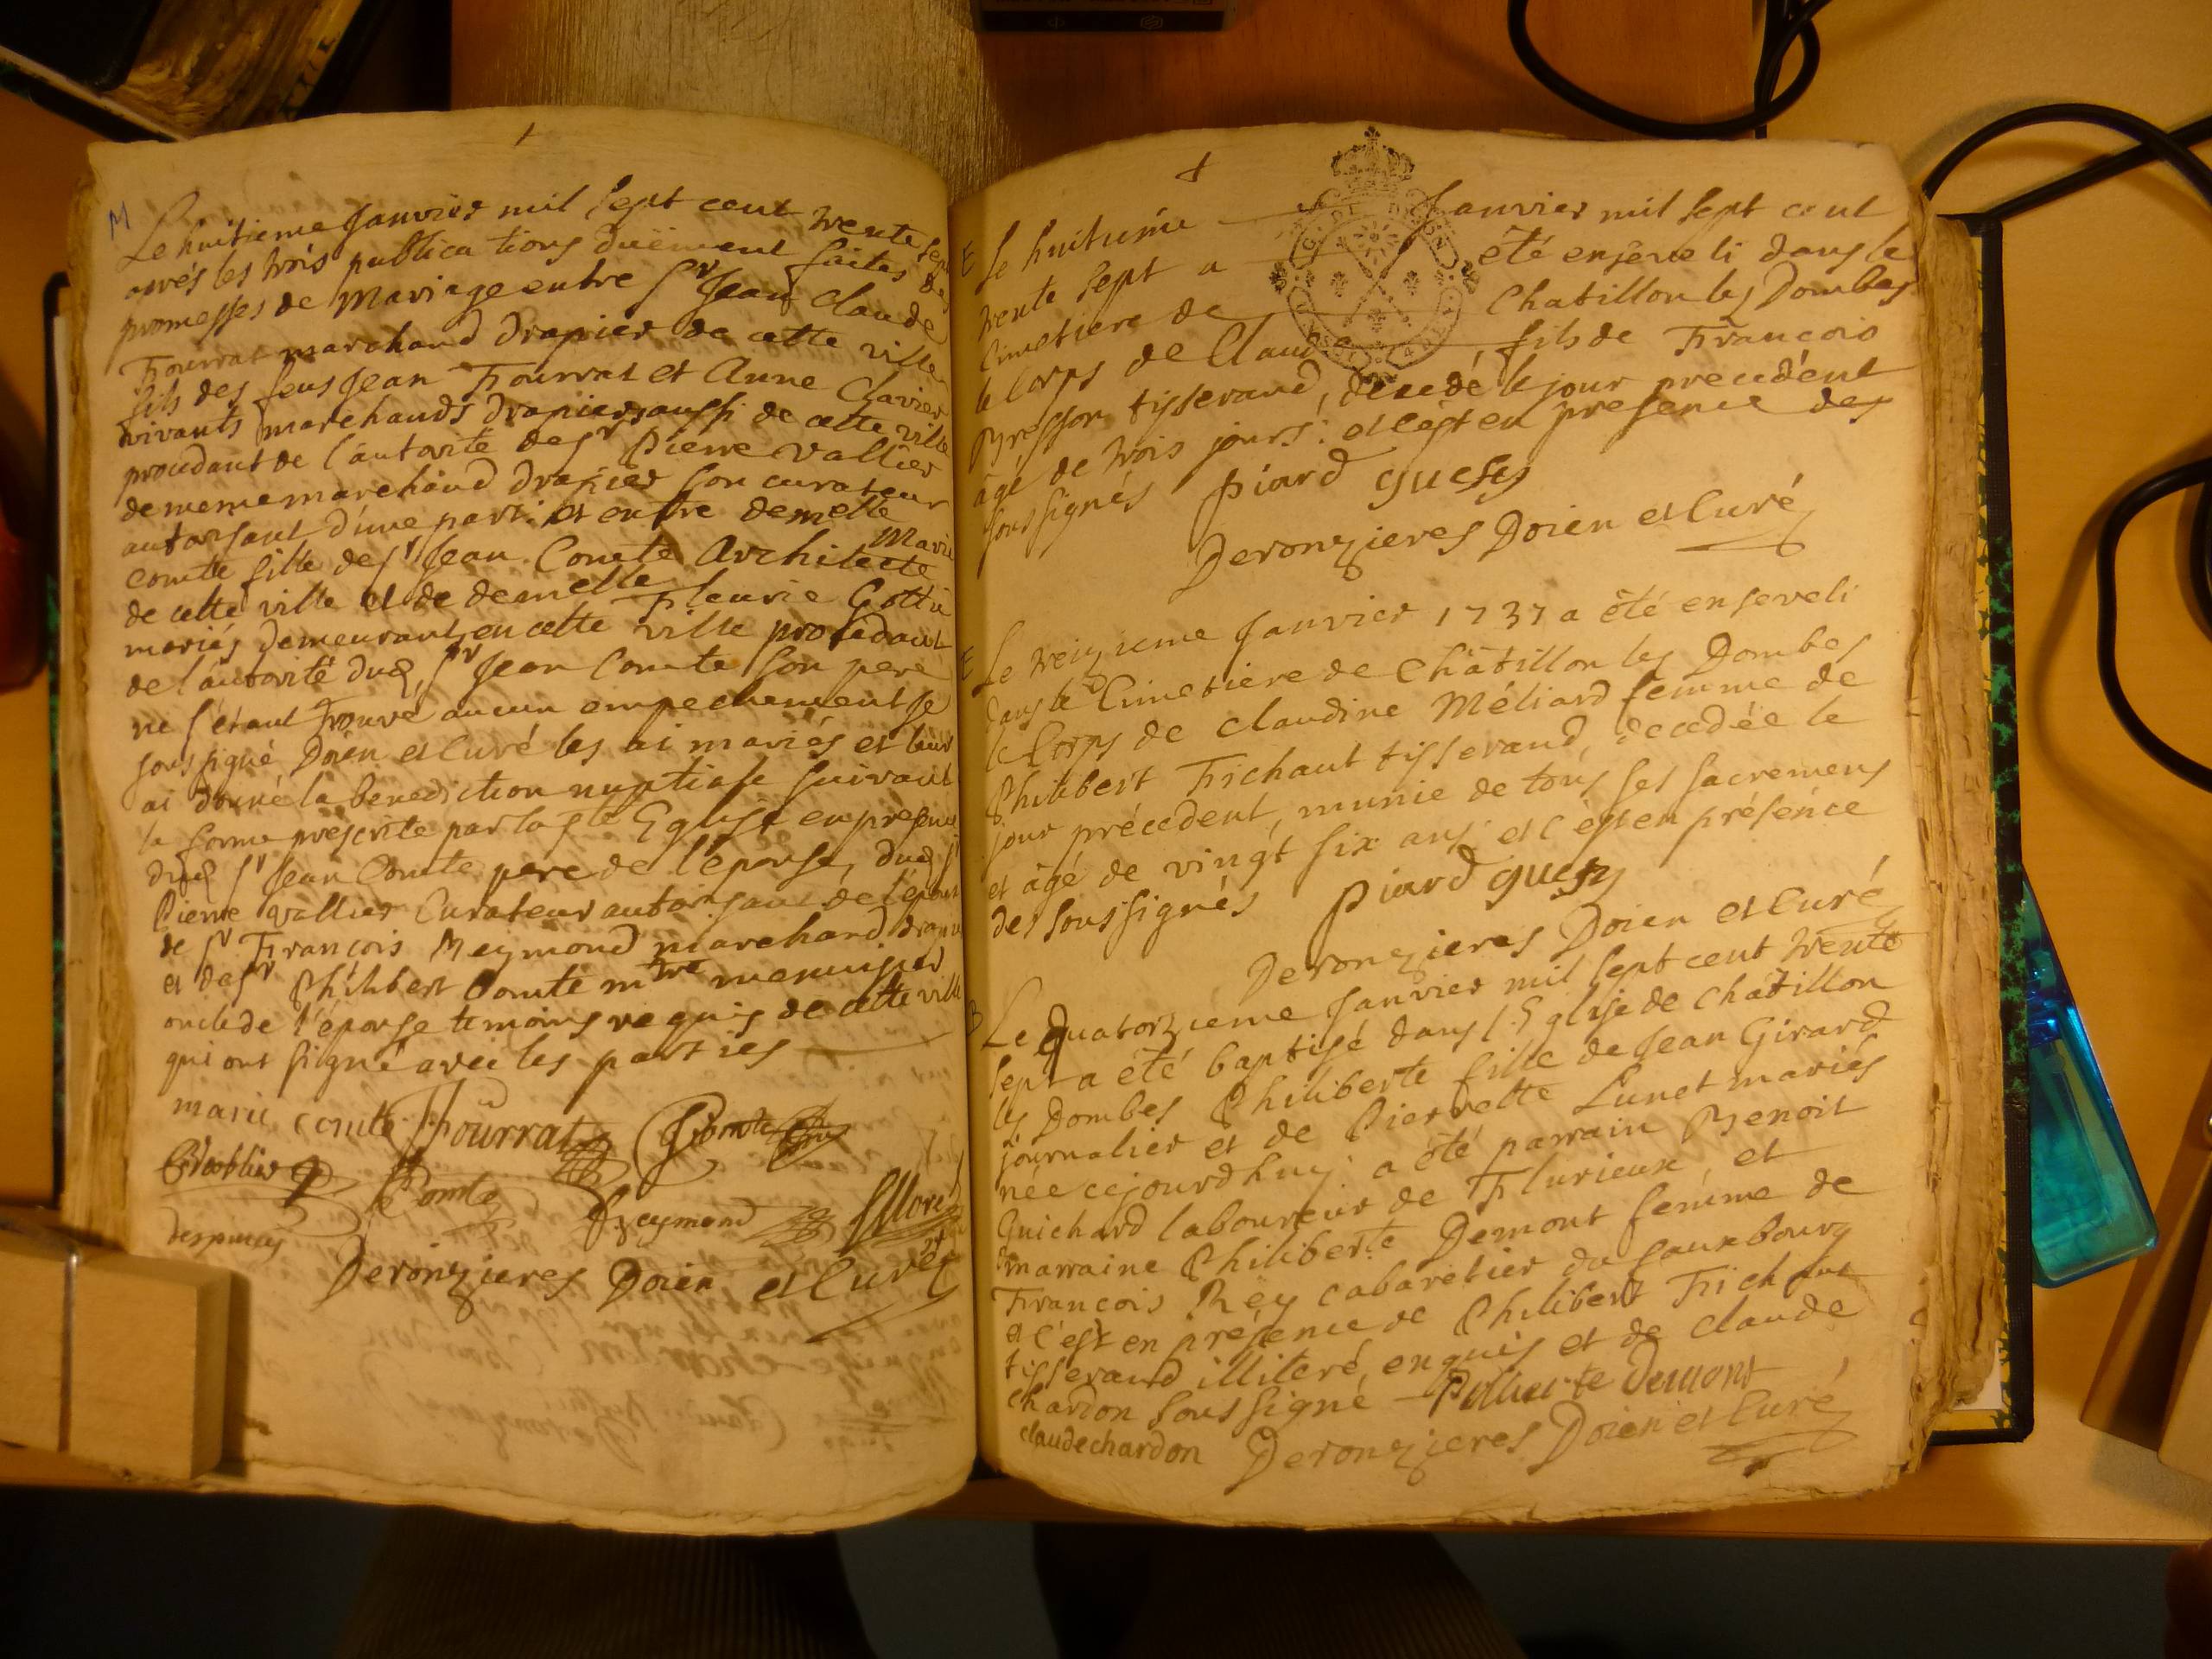 M
Le huitieme Janvier mil sept cent trente sept
aprés les trois publications duëment faites des
promesses de Mariage entre Sr Jean Claude
Fourrat marchand Drapier de cette ville
fils des feus Jean Fourrat et Anne Clavier
vivants marchands Drapiers aussi de cette ville
procedant de l'autorité de Sr Pierre Vallier
de meme marchand Drapier son curateur
autorisant d'une part: et entre demelle Marie
Comte fille de Sr Jean Comte Architecte
de cette ville et de demelle Fleurie
mariés demeurants en cette ville procedant
de l'autorité dud. Sr Jean Comte son pere
ne s'étant trouvé aucun empechement Je
soussigné Doien et Curé les ai mariés et leur
ai donné la benediction nuptiale suivant
la forme prescrite par la ste Eglise en presence
dud Sr Jean Comte pere de l'épouse, dud Sr
Pierre Vallier Curateur autorisant de l'époux
de Sr François Reymond marchand drapier
et de Sr Philibert Comte mtre menuisier
oncle de l'épouse temoins requis de cette ville
qui ont signé avec les parties
marie comte Fourrat Comte
Comte Reymond
Deronzieres Doien et Curé
E
Le huitiéme Janvier mil sept cent
trente sept a été enseveli dans le
Cimetiere de Chatillon les Dombes
le Corps de Claude fils de François
Bresson tisserand, decedé le jour precedent
âgé de trois jours: et c'est en presence des
soussignés Piard Guesy
Deronzieres Doien et Curé
E
Le treizieme Janvier 1737 a été enseveli
dans le Cimetiere de Châtillon les Dombes
le Corps de Claudine Méliard femme de
Philibert Frichaut tisserand, decedée le
jour précedent, munie de tous ses sacremens
et âgé de vingt six ans: et c'est en présence
des soussignés Piard Guesy
Deronzieres Doien et Curé
B
Le Quatorzieme Janvier mil sept cent trente
sept a été baptisé dans l'Eglise de Châtillon
les Dombes Philiberte fille de Jean Girard
journalier et de Pierrette Lunet mariés
née cejourdhuy: a été parrain Benoit
Guichard laboureur de Flurieux, et
marraine Philiberte Demont femme de
François Rey cabaretier du fauxbourg
et c'est en présence de Philibert Frichaut
tisserand illiteré, enquis et de Claude
Chardon soussigné Demont
claude chardon Deronzieres Doien et Curé